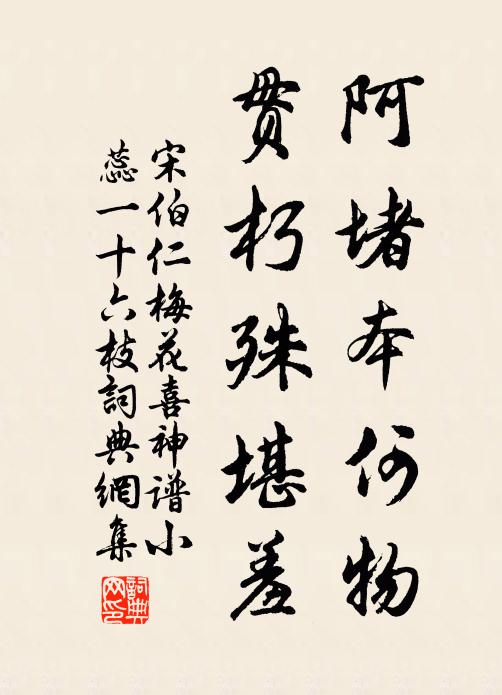 阿堵本何物
贯朽殊堪羞
宋伯仁梅花喜神谱小
蕊一十六枝詞典網集